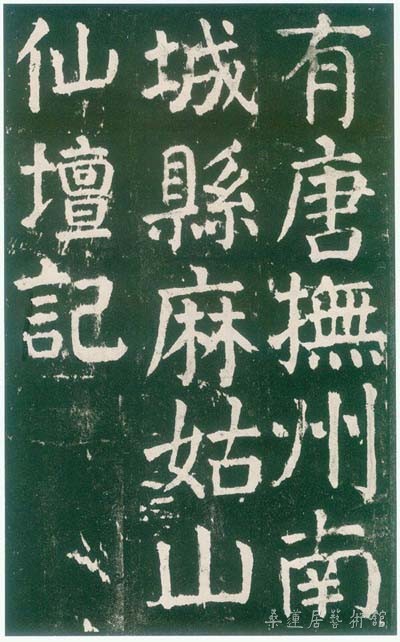 有唐撫州南
城縣麻姑山
仙壇記
桑蓮居藝術館